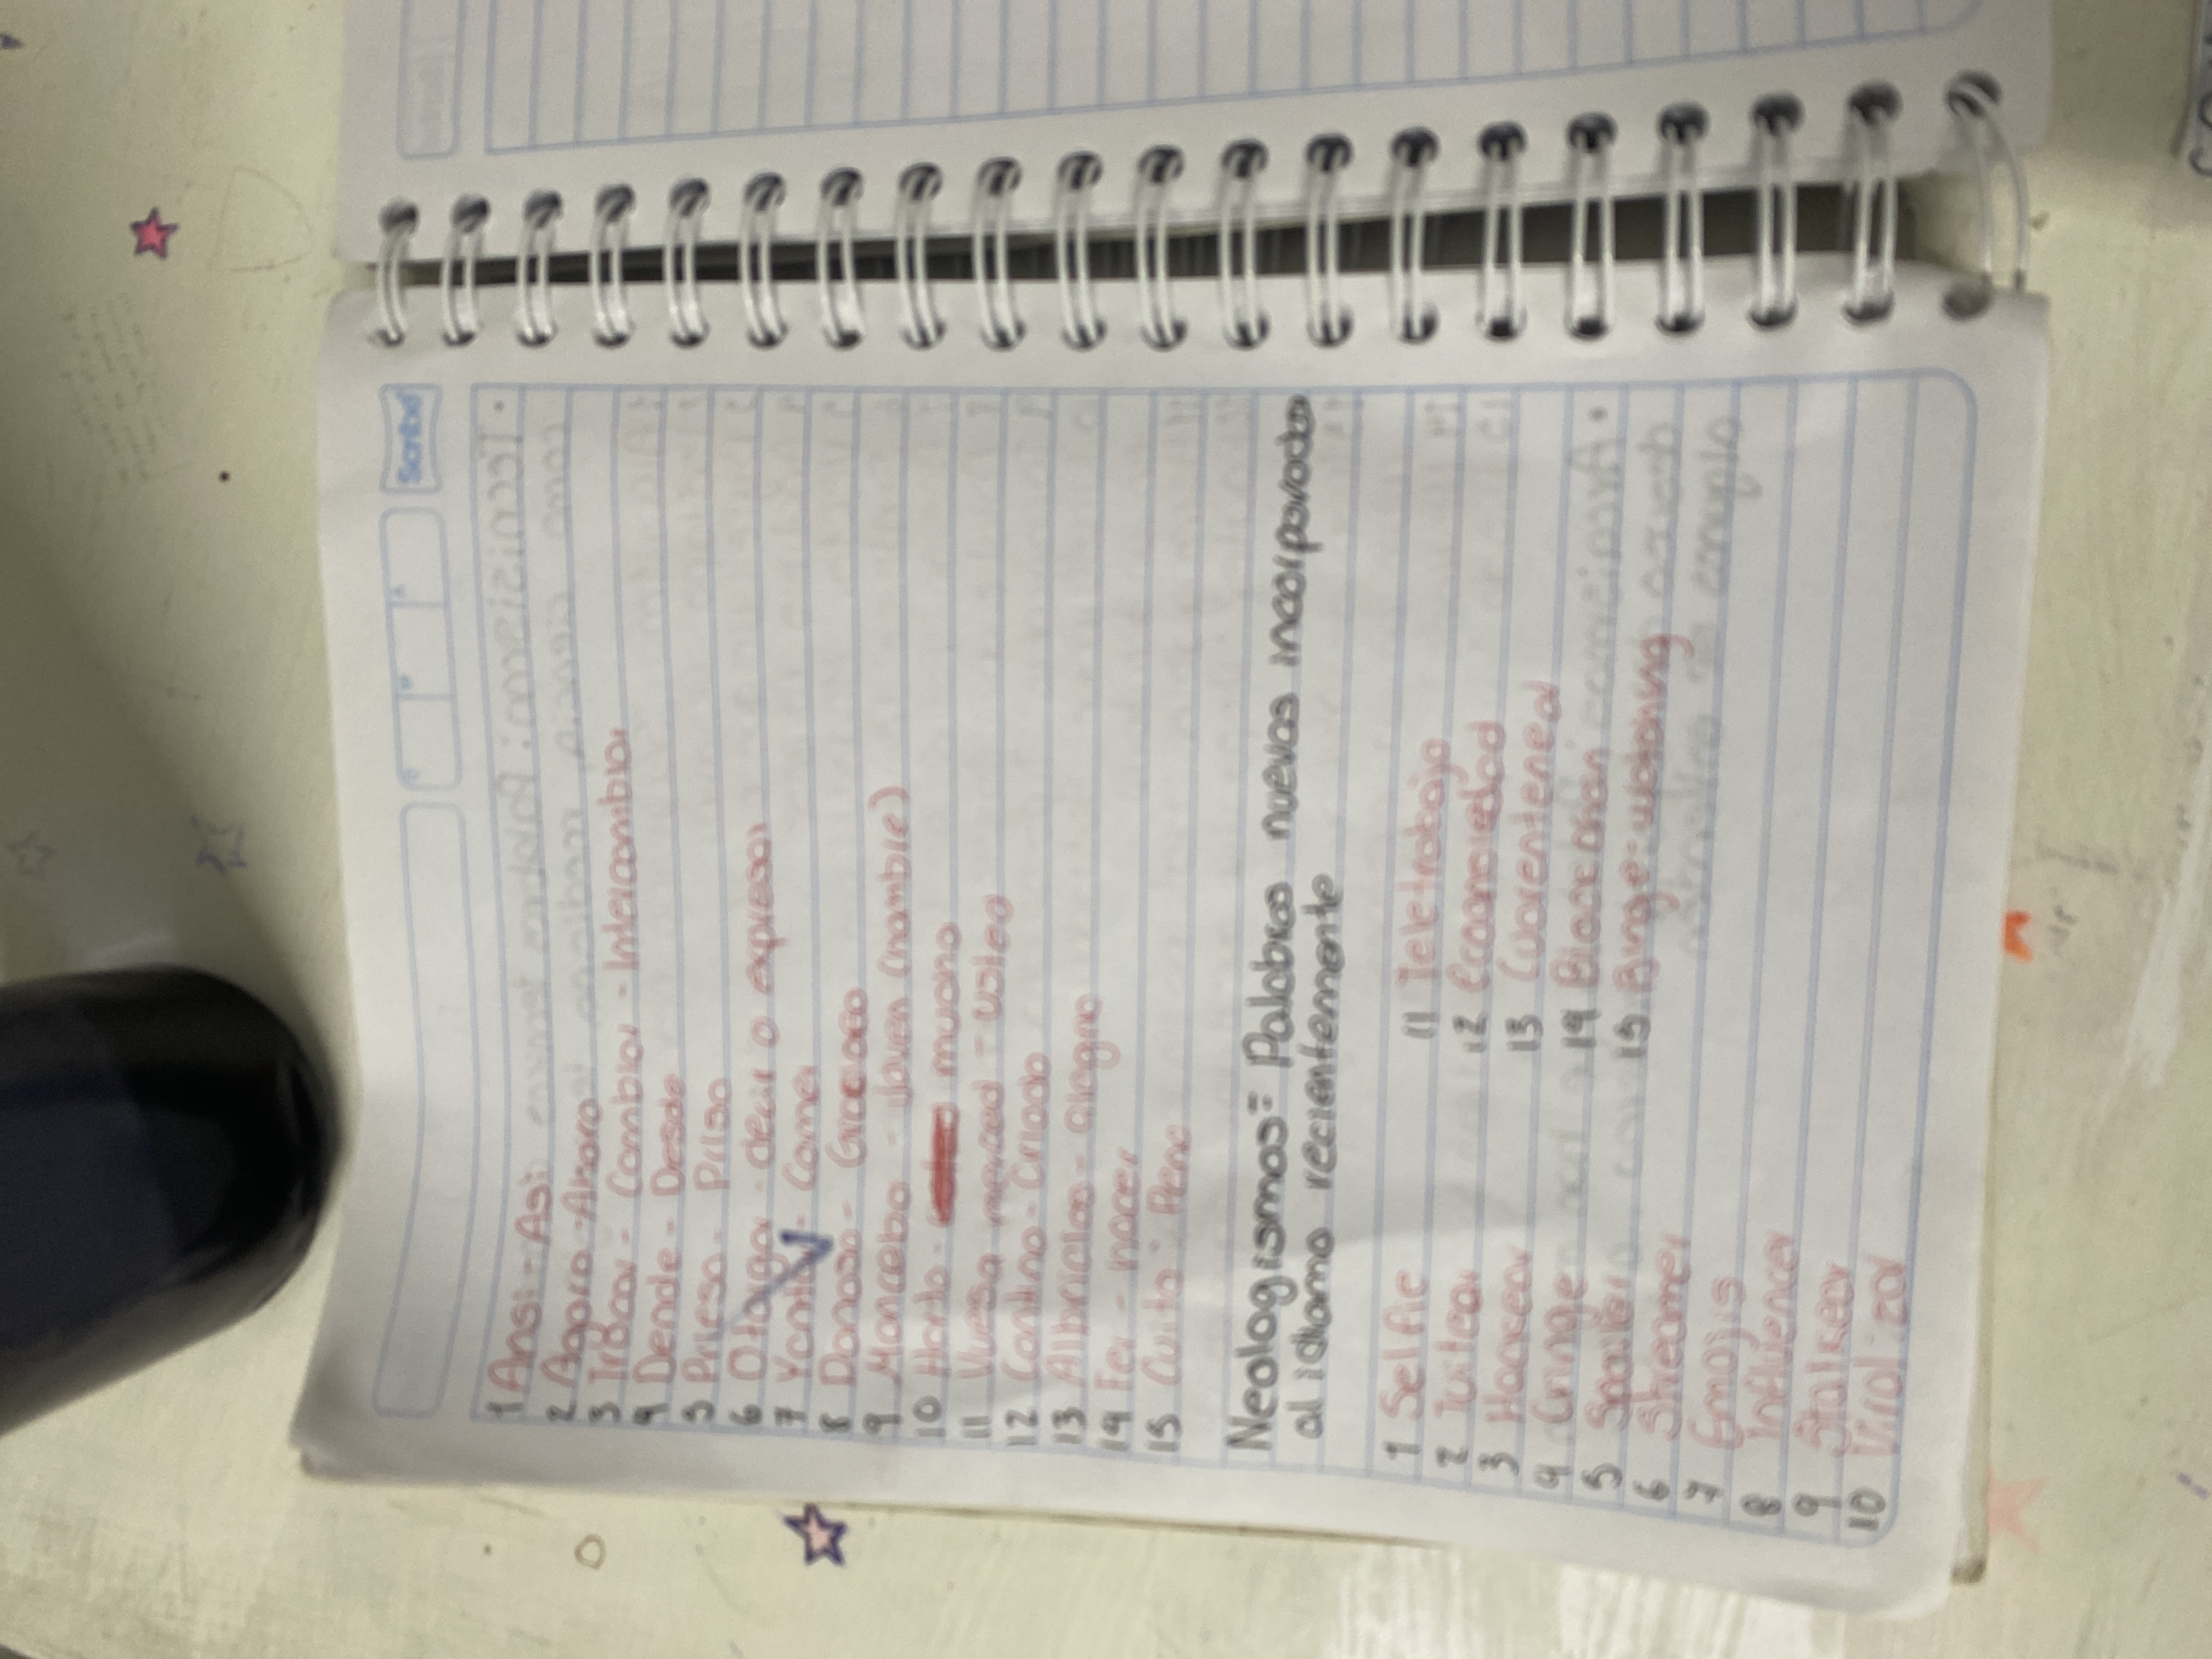 Scribe
1 Ansi - Asi
2 Agora - Ahora
3 Trocar - Cambiar - Intercambiar
4 Dende - Desde
5 Priesa - Prisa
6 Otorgar - decir o expresar
7 Yantar - Comer
8 Donoso - Gracioso
9 Mancebo - Joven (nombre)
10 Harto - mucho
11 Vuesa merced - usted
12 Contino - Criado
13 Albricias - alegria
14 Fer - hacer
15 Cuita - Pena
Neologismos = Palabras nuevas incorporadas
al idioma recientemente
1 Selfie
2 Tuitear
3 Hackear
4 Cringe
5 Spoiler
6 Streamer
7 Emojis
8 Influencer
9 Stalkear
10 Viralizar
11 Teletrabajo
12 Ecoansiedad
13 Cuarentenea
14 Blockchain
15 Binge-watching